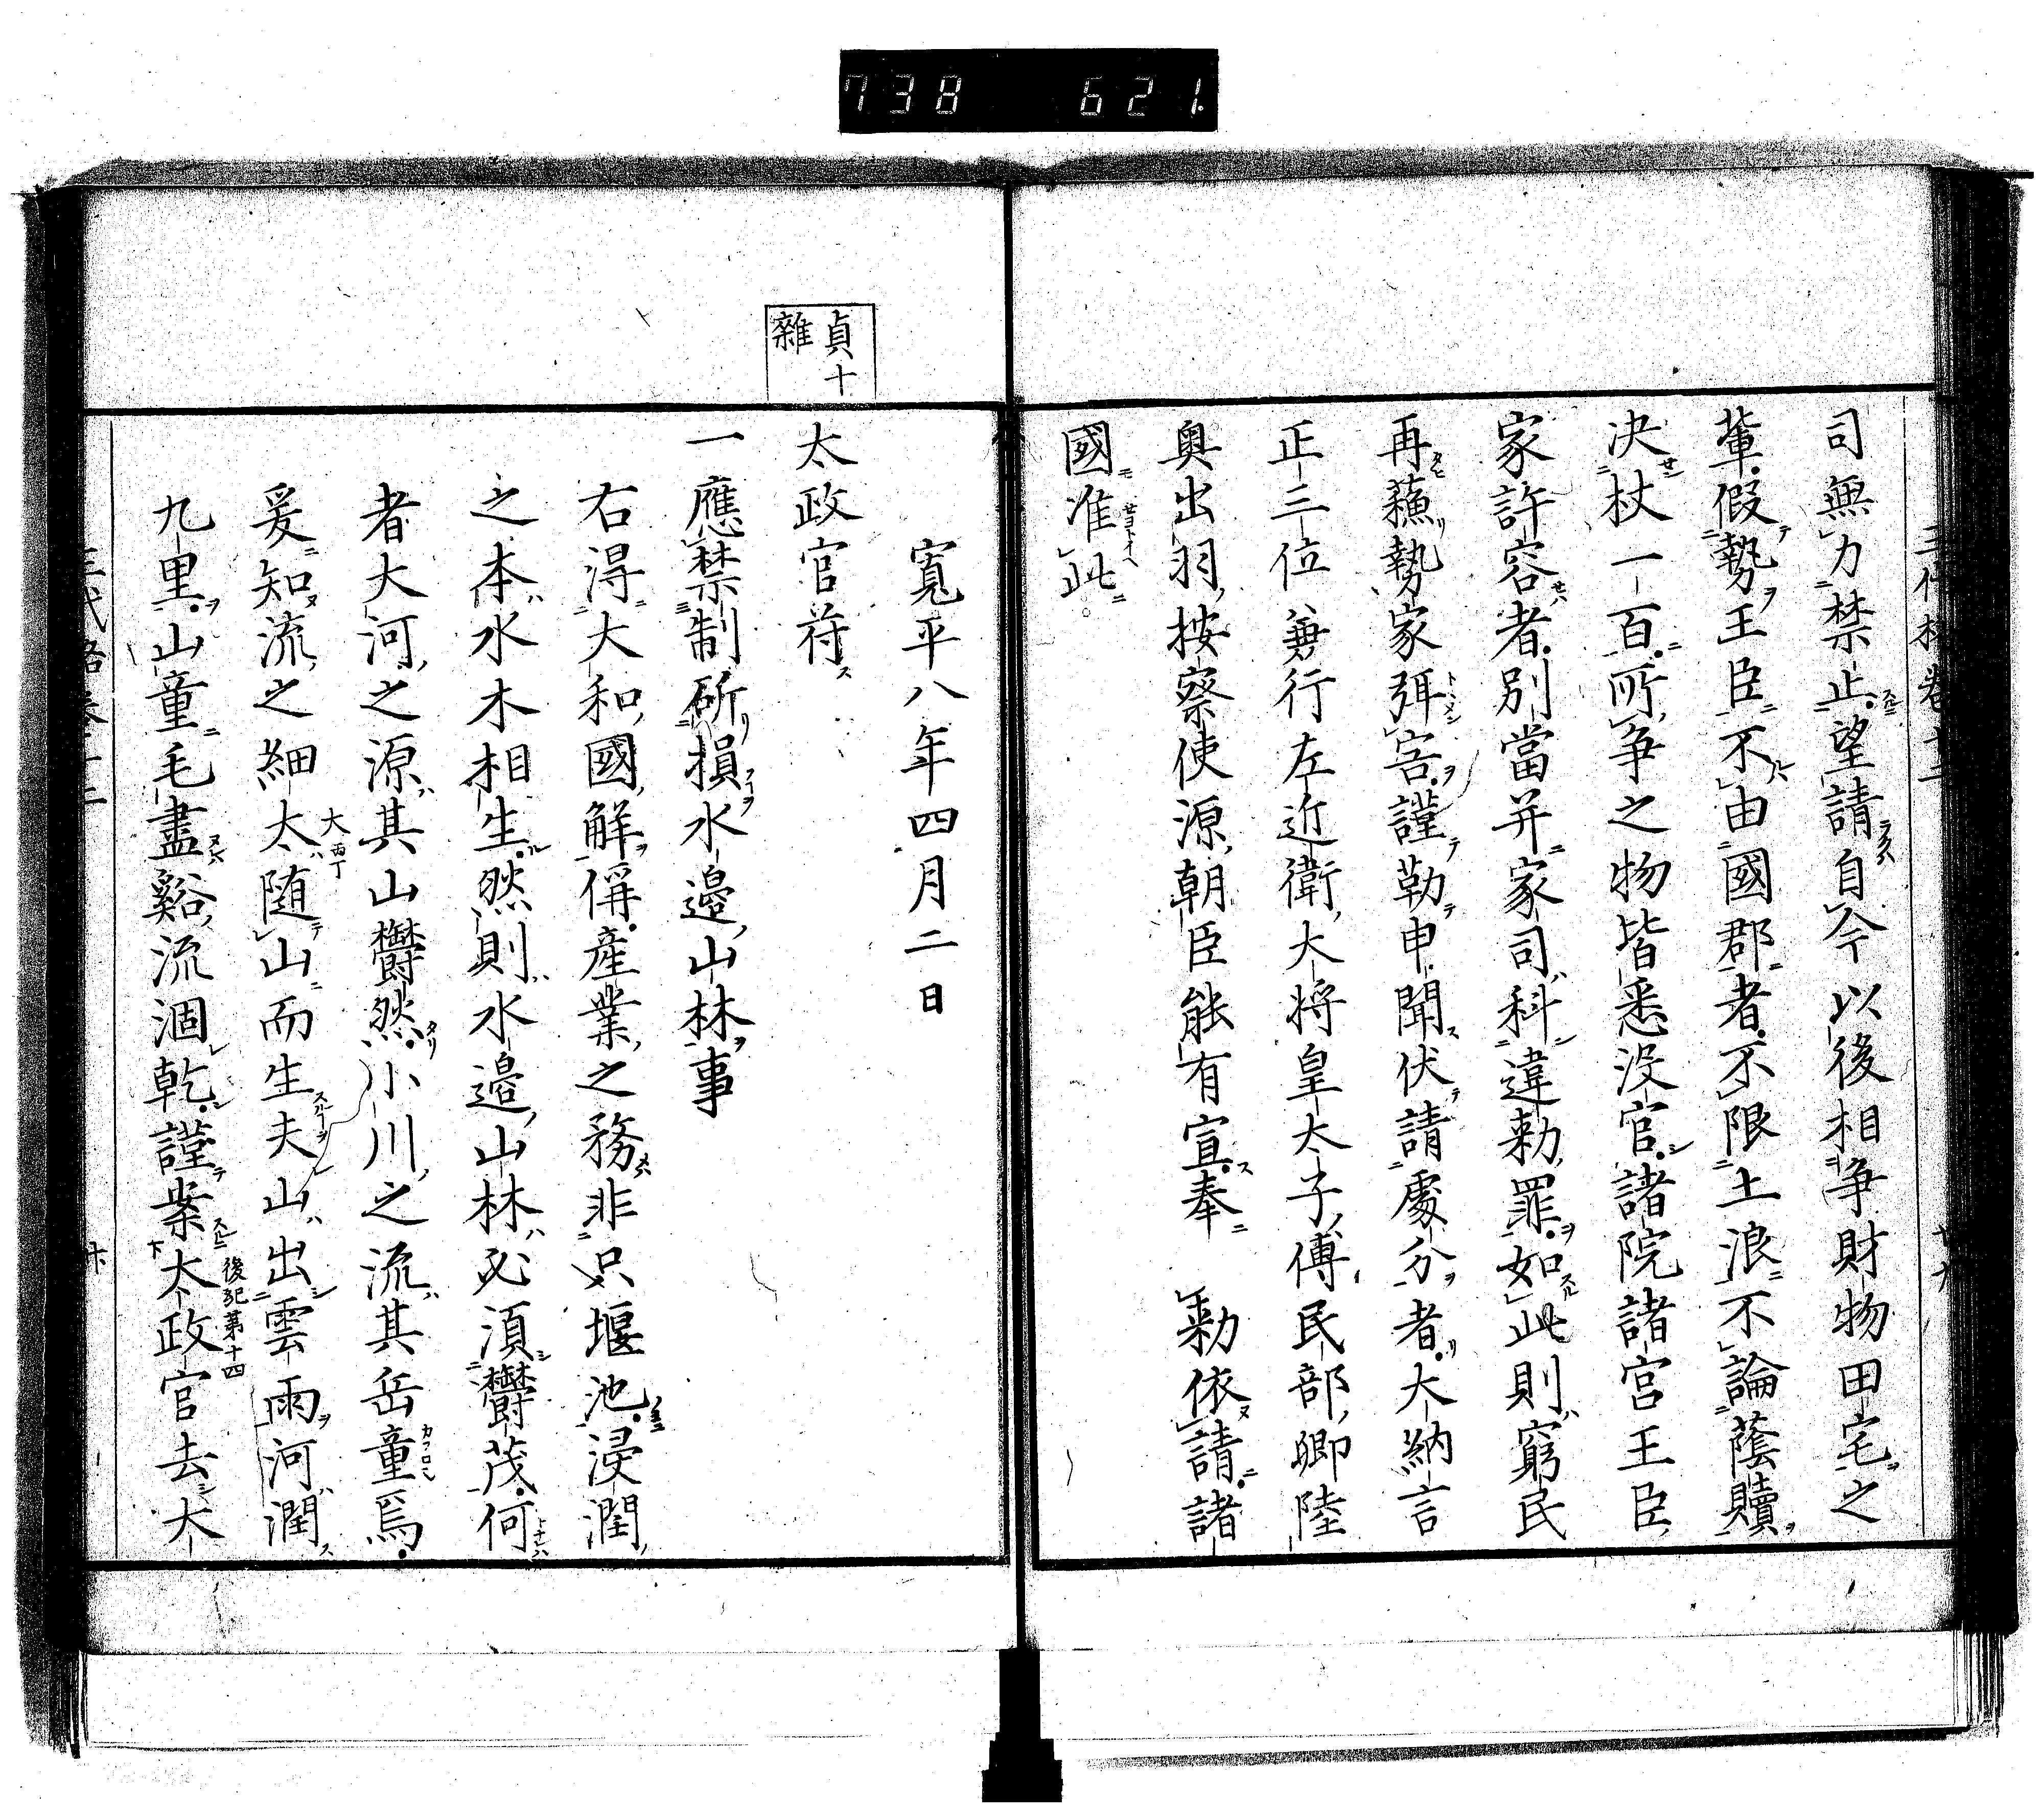 738 621
司無力禁止望請自今以後相爭財物田宅之
輩假勢王臣不由國郡者不限土浪不論蔭贖
决杖一百所爭之物皆悉没官諸院諸宮王臣
家許容者別當并家司科違勅罪如此則窮民
再蘓勢家弭害謹勒申聞伏請處分者大納言
正三位兼行左近衛大將皇太子傅民部卿陸
奥出羽按察使源朝臣能有宣奉　勅依請諸
國准此
寬平八年四月二日
貞十
雜
太政官符
一應禁制斫損水邊山林事
右得大和國解偁產業之務非只堰池浸潤
之本水木相生然則水邊山林必須欝茂何
者大河之源其山欝然小川之流其岳童焉
爰知流之細太随山而生夫山出雲雨河潤
大丙丁
九里山童毛盡谿流涸乾謹案太政官去大
後紀第十四